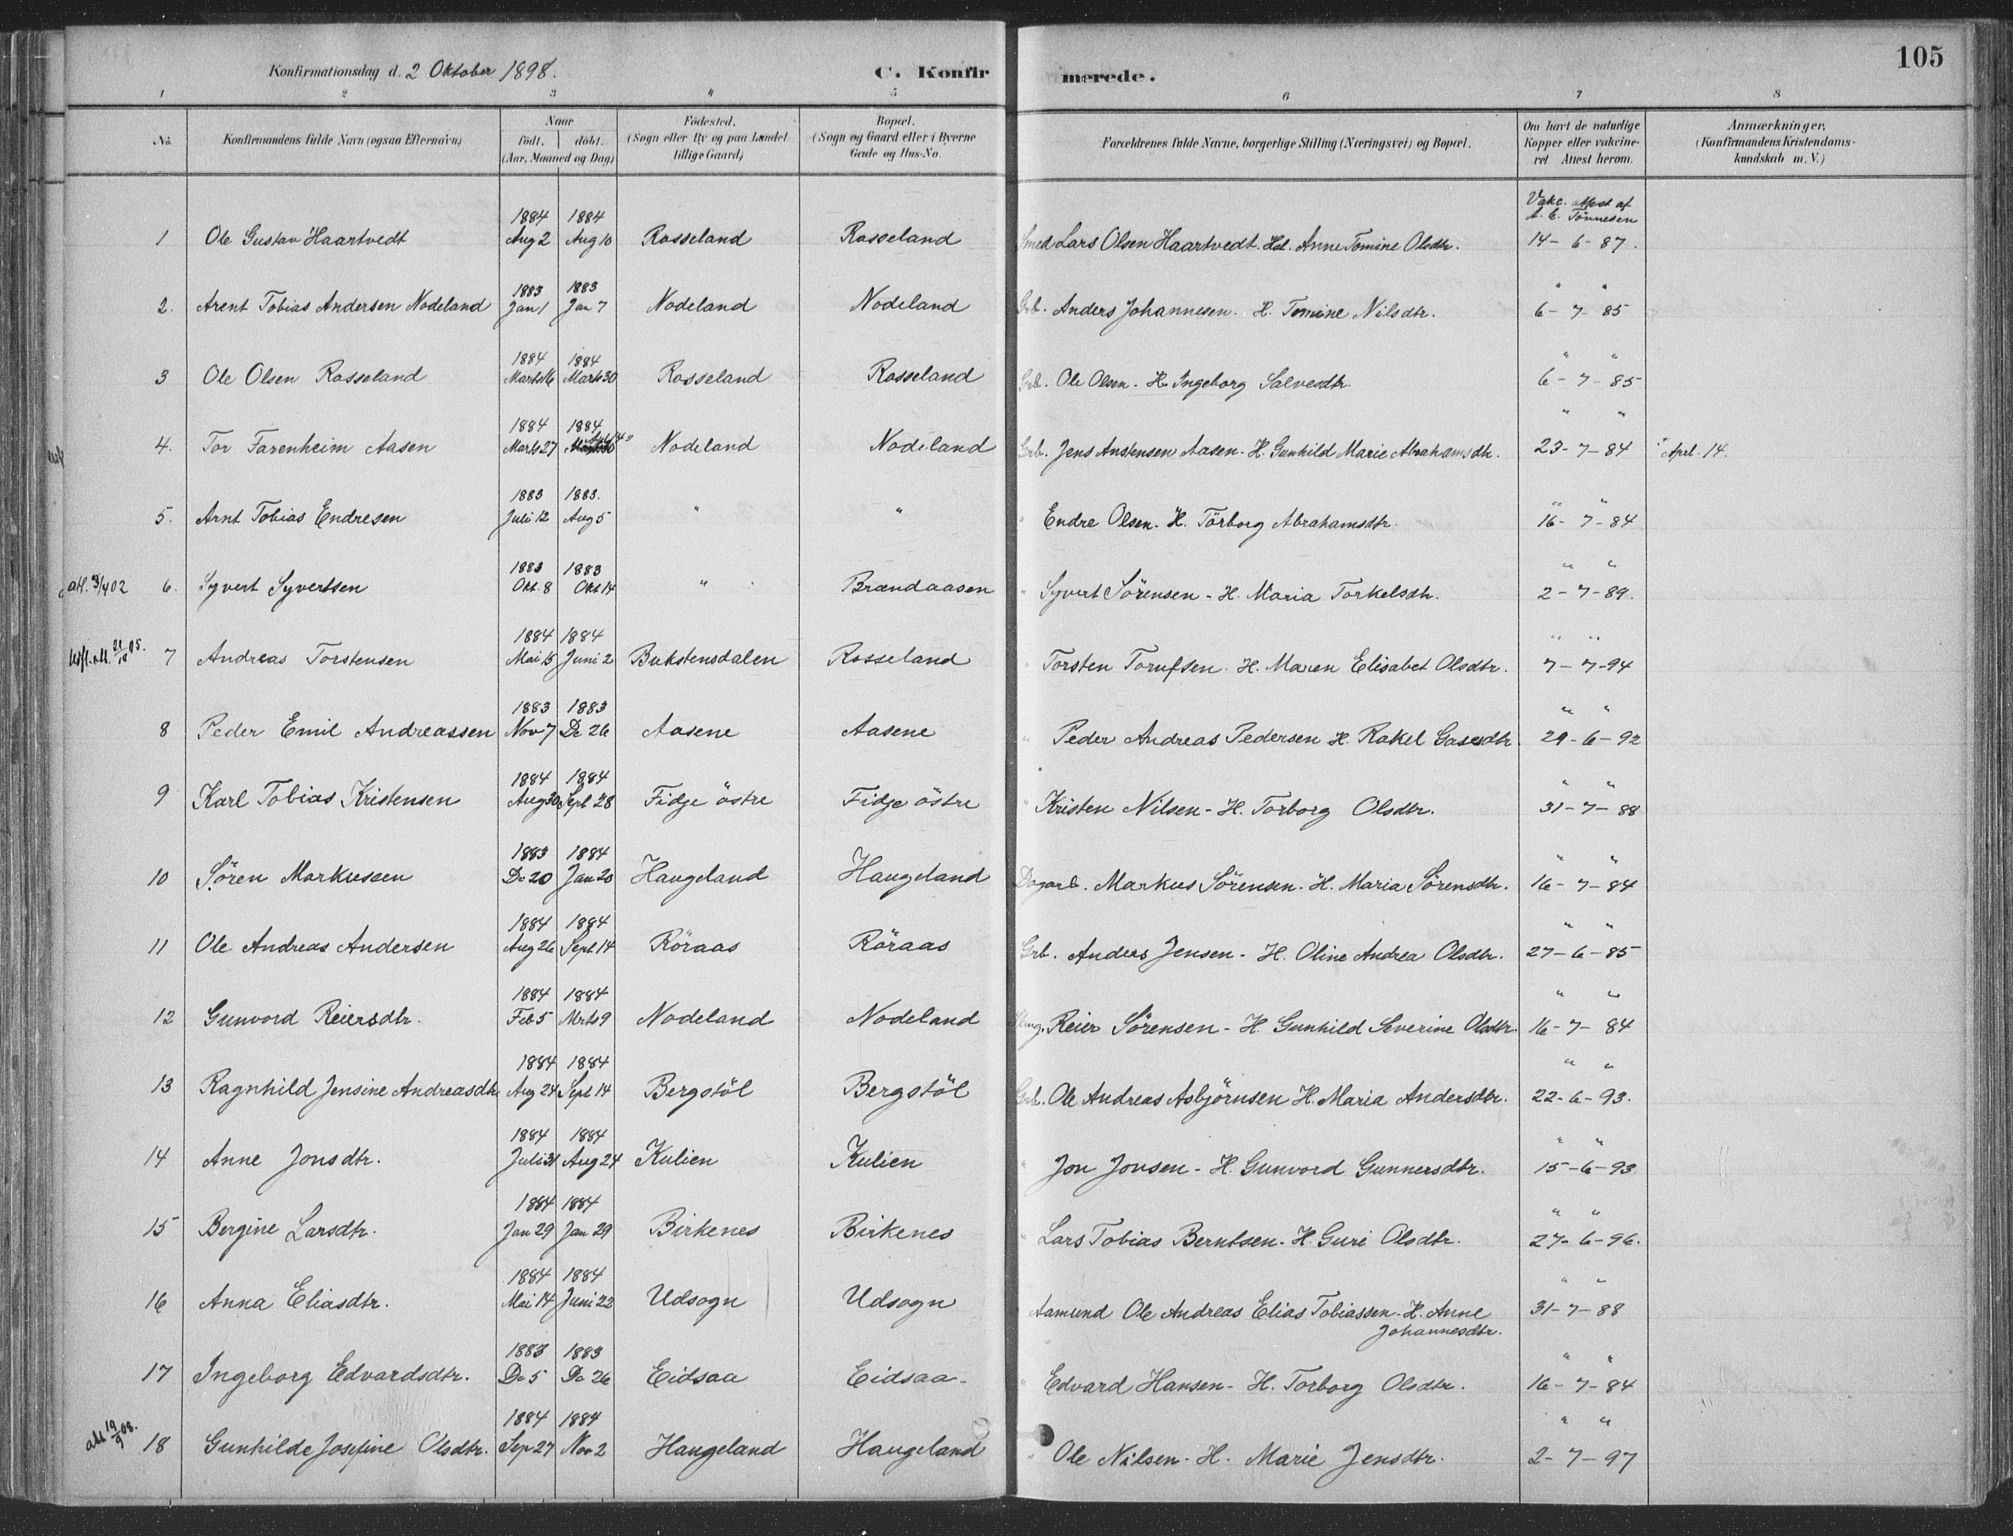 105
Konfirmationsdag d. 2 Oktober 1898.
C. Konfirmerede.
1 2 3 4 5 6 7 8
No. Konfirmandens fulde Navn (ogsaa Efternavn) Naar født. døbt. (Aar, Maaned og Dag) Fødested. (Sogn eller By og paa Landet tillige Gaard) Bopæl. (Sogn og Gaard eller i Byerne Gade og Hus-No. Forældrenes fulde Navne, borgerlige Stilling (Næringsvei) og Bopæl. Om havt de naturlige Kopper eller vakcineret Attest herom. Anmærkninger, (Konfirmandens Kristendomskundskab m. V.)
Vakc. attest af A. E. Tönnesen
1 Ole Gustav Haartvedt 1884 Aug 2 1884 Aug 10 Rosseland Rosseland Smed Lars Olsen Haartvedt. Hst. Anne Tomine Olsdtr. 14-6-87.
2. Arent Tobias Andersen Nodeland 1883 Jan 1 1883 Jan 7 Nodeland Nodeland Grb. Anders Johannesen. H. Tomine Nilsdtr. " " 6-7-85
3 Ole Olsen Rosseland 1884 Marts 16 1884 Marts 30 Rosseland Rosseland Grb. Ole Olsen - H. Ingeborg Salvesdtr. " " 6-7-85
4. Tor Farenheim Aasen 1884 Marts 27 1884 Nodeland Nodeland Grb. Jens Anstensen Aasen - H. Gunhild Marie Abrahamsdtr. " " 23-7-84 Apl. 14.
5. Arnt Tobias Endresen 1883 Juli 12 1883. Aug 5 " " " Endre Olsen - H. Törborg Abrahamsdtr. " " 16-7-84
att. 3/4 02 6. Syvert Syvertsen 1883 Okt. 8 1883 Okt 14 " Brændaasen " Syvert Sörensen - H. Maria Torkelsdtr. " " 2-7-89.
att. 21/10 05. 7 Andreas Torstensen 1884 Mai 15 1884 Juni 2 Bukstensdalen Rosseland " Torsten Torufsen. H. Maren Elisabet Olsdtr. " " 7-7-94
8 Peder Emil Andreassen 1883 Nov 7 1883 De 26 Aasene Aasene " Peder Andreas Pedersen H. Rakel Gasesdtr. " " 29-6-92
9 Karl Tobias Kristensen 1884 Aug 30 1884 Sept 28 Fidje östre Fidje östre " Kristen Nilsen - H. Torborg Olsdtr. " " 31-7-88
10 Sören Markussen 1883 De 20 1884 Jan 20 Haugeland Haugeland Dagarb. Markus Sörensen - H. Maria Sörensdtr. " " 16-7-84
11 Ole Andreas Andersen 1884 Aug 26 1884 Sept 14 Röraas Röraas Grb. Anders Jensen - H. Oline Andrea Olsdtr. " " 27-6-85
12 Gunvord Reiersdtr. 1884 Feb 5 1884 Mrts 9 Nodeland Nodeland Reier Sörensen - H. Gunhild Severine Olsdtr. " " 16-7-84
13 Ragnhild Jensine Andreasdtr 1884 Aug 24 1884 Sept 14 Bergstöl Bergstöl Grb. Ole Andreas Asbjörnsen H. Maria Andersdtr. " " 22-6-93.
14 Anne Jonsdtr. 1884 Juli 31 1884 Aug 24 Kulien Kulien " Jon Jonsen - H. Gunvord Gunnersdtr. " " 15-6-93
15 Bergine Larsdtr. 1884 Jan 29 1884 Jan 29 Birkenes Birkenes " Lars Tobias Berntsen - H. Guri Olsdtr. " " 27-6-96.
16 Anna Eliasdtr. 1884 Mai 14 1884 Juni 22 Udsogn Udsogn Aamund Ole Andreas Elias Tobiassen - H. Anne Johannesdtr. " " 31-7-88
17 Ingeborg Edvardsdtr. 1883 De 5 1883 De 26 Eidsaa Eidsaa. " Edvard Hansen - H. Torborg Olsdtr. " " 16-7-84
att 19/9 08. 18 Gunhilde Josefine Olsdtr. 1884 Sep 27 1884 Nov 2 Haugeland Haugeland " Ole Nilsen - H. Marie Jensdtr. " " 2-7-97